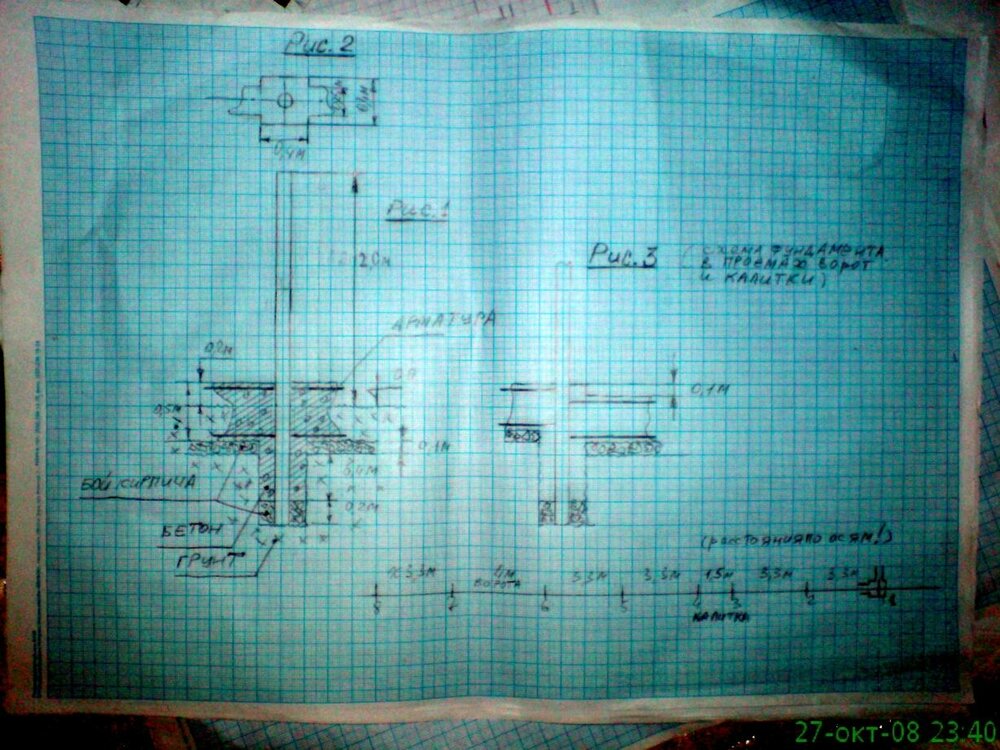 Рис. 2
0,4м
Рис. 1
2,0м
Рис. 3 (схема фундамента
в проемах ворот
и калитки)
арматура
0,5м
0,1м
0,1м
0,4м
0,2м
бой кирпича
бетон
грунт
(расстояния по осям!)
3,3м
4м
ворота
3,3м
3,3м
1,5м
3,3м
3,3м
8
7
6
5
4
3
2
1
калитка
27-окт-08 23:40